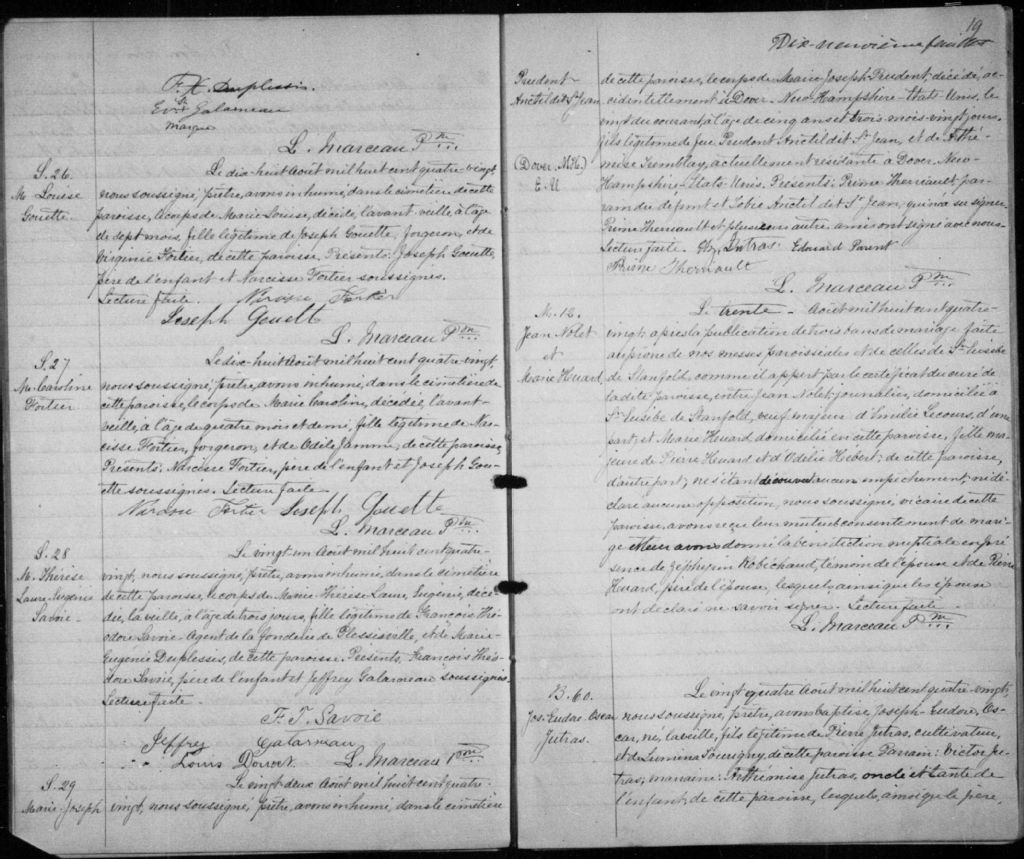 F. X. Duplessis.
Galarneau
marque
L. Marceau Ptre
S. 26.
M. Louise
Gouette
Le dix-huit Août mil huit cent quatre-vingt,
nous soussigné, prêtre, avons inhumé, dans le cimetière de cette
paroisse, le corps de Marie Louise, décédée, l'avant-veille à l'age
de sept mois, fille légitime de Joseph Gouette, forgeron, et de
Virginie Fortier, de cette paroisse, Présents: Joseph Gouette,
père de l'enfant et Narcisse Fortier soussignés.
Lecture faite. Fortier
Joseph Gouett
L. Marceau Ptre
S. 27
M. Caroline
Fortier
Le dix-huit Août mil huit cent quatre-vingt,
nous soussigné, prêtre, avons inhumé, dans le cimetière de
cette paroisse, le corps de Marie Caroline, décédée, l'avant-
veille, à l'age de quatre mois et demi, fille légitime de Nar-
cisse Fortier, forgeron, et de Odile Jamme, de cette paroisse,
Présents: Narcisse Fortier, père de l'enfant et Joseph Gou-
ette soussignés. Lecture faite
Joseph Gouett
L. Marceau Ptre
S. 28
M. Thérèse
Laure Eugénie
Savoie
Le vingt-un Août mil huit cent quatre-
vingt, nous soussigné, prêtre, avons inhumé, dans le cimetière
de cette paroisse, le corps de Marie Thérèse Laure Eugénie, décé-
dée, la veille, à l'age de trois jours, fille légitime de François Thé-
odore Savoie Agent de la fonderie de Plessisville, et de Marie-
Eugénie Duplessis, de cette paroisse. Présents, François Théo-
dore Savoie, père de l'enfant et Jeffrey Galarneau soussignés.
Lecture faite
F. T. Savoie
Jeffrey Galarneau
Louis L. Marceau Ptre
S. 29
Marie Joseph
Le vingt-deux Août mil huit cent quatre-
vingt, nous soussigné, prêtre, avons inhumé, dans le cimetière
19
Dix-neuvième feuillet
Prudent
Anctil dit St Jean
(Dover N.H.)
E. U
de cette paroisse, le corps de Marie Joseph-Prudent, décédé, ac-
cidentellement à Dover New-Hampshire-Etats-Unis, le
vingt du courant à l'age de cinq ans et trois mois-vingt jours,
fils légitime de feu Prudent Anctil dit St Jean, et de Athé-
mise Tremblay, actuellement résidante à Dover, New-
Hampshire-Etats-Unis. Présents: Prime Therriault par-
rain du défunt et Anctil dit St Jean, qui n'a su signer.
Prime Therriault et plusieurs autre amis ont signé avec nous
Lecture faite Jutras Edouard Parent
Prime Therriault
L. Marceau Ptre
M. 12.
Jean Nolet
et
Marie Huard
Le trente Août mil huit cent quatre-
vingt, après la publication de trois bans de mariage faite
au prône de nos messes paroissiales et de celles de St Eusèbe
de Stanfold, comme il appert par le certificat du curé de
la dite paroisse, entre Jean Nolet, journalier, domicilié à
St Eusèbe de Stanfold, veuf majeur d'Emilie Lecours, d'une
part, et Marie Huard domiciliée en cette paroisse, fille ma-
jeure de Pierre Huard et d'Odélie Hebert, de cette paroisse,
d'autre part; ne s'étant découvert aucun empêchement, ni dé-
claré aucune opposition, nous soussigné, vicaire de cette
paroisse, avons reçu leur mutuel consentement de maria-
ge et leur avons donné la bénédiction nuptiale en pré-
sence de Zephirin Robichaud, témoin de l'époux et de Pierre
Huard, père de l'épouse, lesquels, ainsi que les époux
ont déclaré ne savoir signer. Lecture faite
L. Marceau Ptre
B. 60.
Jos. Eudore Oscar
Jutras.
Le vingt-quatre Août mil huit cent quatre-vingt,
nous soussigné, prêtre, avons baptisé, Joseph-Eudore, Os-
car, né, la veille, fils légitime de Pierre Jutras, cultivateur,
et de Lumina Tourigny, de cette paroisse Parrain: Victor Ju-
tras; marraine: Arthémise Jutras, oncle et tante de
l'enfant, de cette paroisse, lesquels, ainsi que le père,